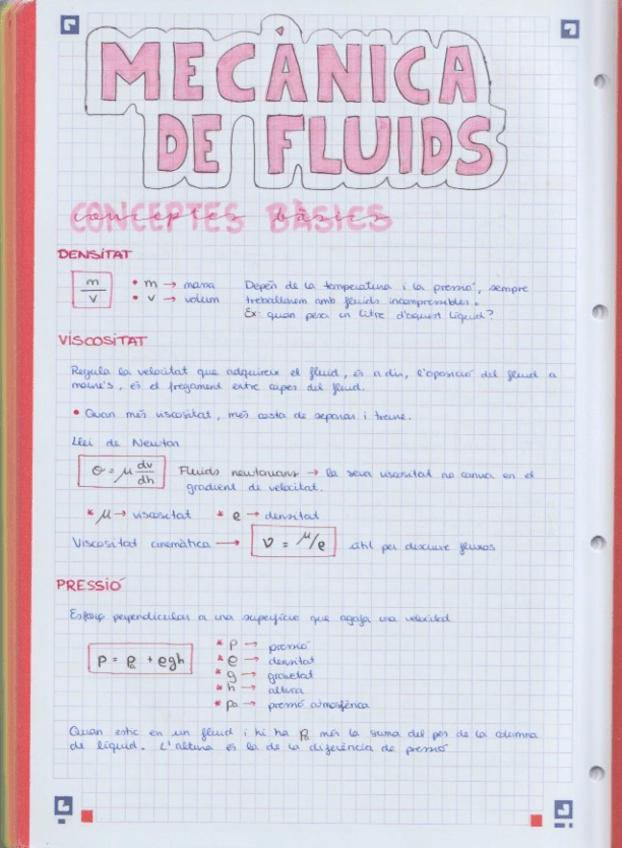 MECÀNICA
DE FLUIDS
CONCEPTES BÀSICS
conceptes bàsics
DENSITAT
m
v
• m → massa
• v → volum
Depèn de la temperatura i la pressió, sempre
treballarem amb fluids incompressibles.
Ex: quan pesa un litre d'aquest líquid?
VISCOSITAT
Regula la velocitat que adquireix el fluid, és a dir, l'oposició del fluid a
moure's, és el fregament entre capes del fluid.
• Quan més viscositat, més costa de separar i treure.
Llei de Newton
σ = μ dv/dh
Fluids newtonians → la seva viscositat no canvia en el
gradient de velocitat.
* μ → viscositat * ρ → densitat
Viscositat cinemàtica → ν = μ/ρ útil per descriure fluxos
PRESSIÓ
Esforç perpendicular a una superfície que agafa una velocitat
P = P₀ + ρgh
* P → pressió
* ρ → densitat
* g → gravetat
* h → altura
* P₀ → pressió atmosfèrica
Quan estic en un fluid i hi ha P₀ més la suma del pes de la columna
de líquid. L'altura és la de la diferència de pressió